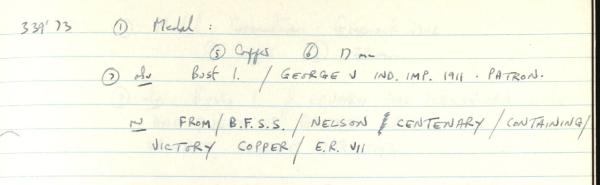 339'73 ① Medal :
⑤ Copper ⑥ 17 mm
⑦ obv Bust l. / GEORGE V IND. IMP. 1911 · PATRON.
FROM / B.F.S.S. / NELSON CENTENARY / CONTAINING /
VICTORY COPPER / E.R. VII